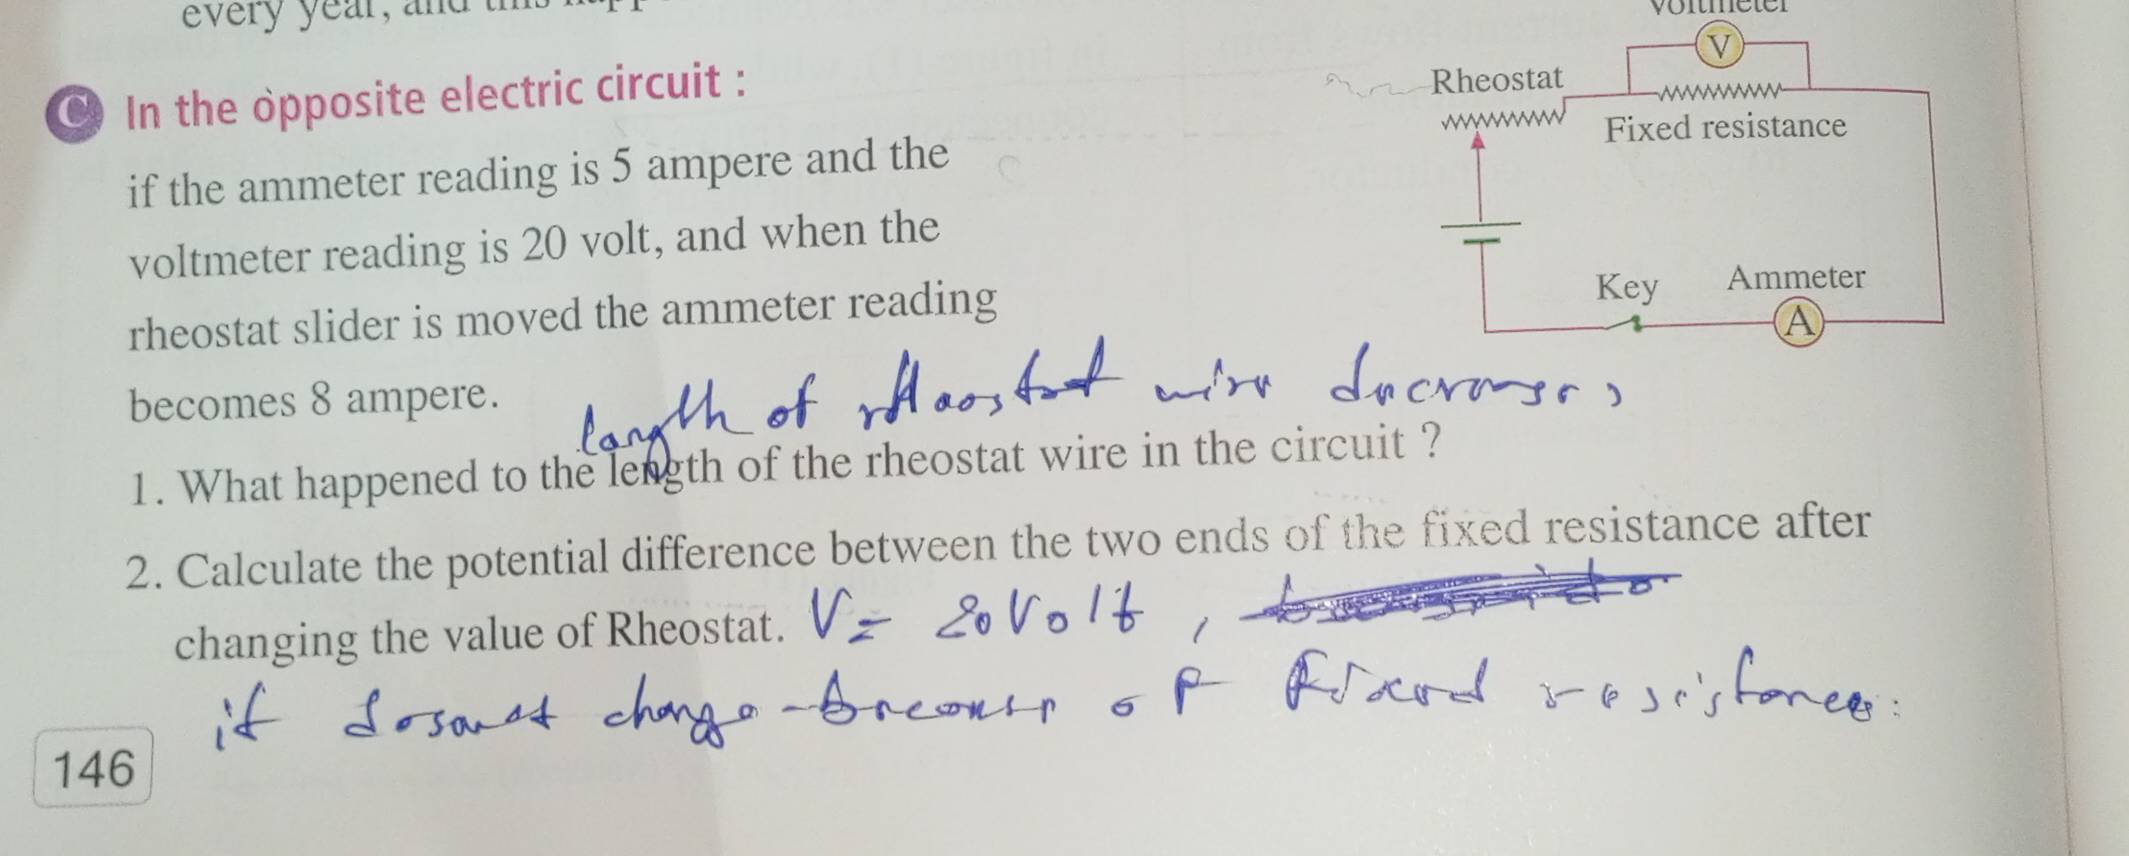 every year, and this
voltmeter
V
Rheostat
Fixed resistance
Key
Ammeter
A
C In the opposite electric circuit :
if the ammeter reading is 5 ampere and the
voltmeter reading is 20 volt, and when the
rheostat slider is moved the ammeter reading
becomes 8 ampere.
length of wire
1. What happened to the length of the rheostat wire in the circuit ?
2. Calculate the potential difference between the two ends of the fixed resistance after
changing the value of Rheostat. V = 20 Volt ,
it change of
146